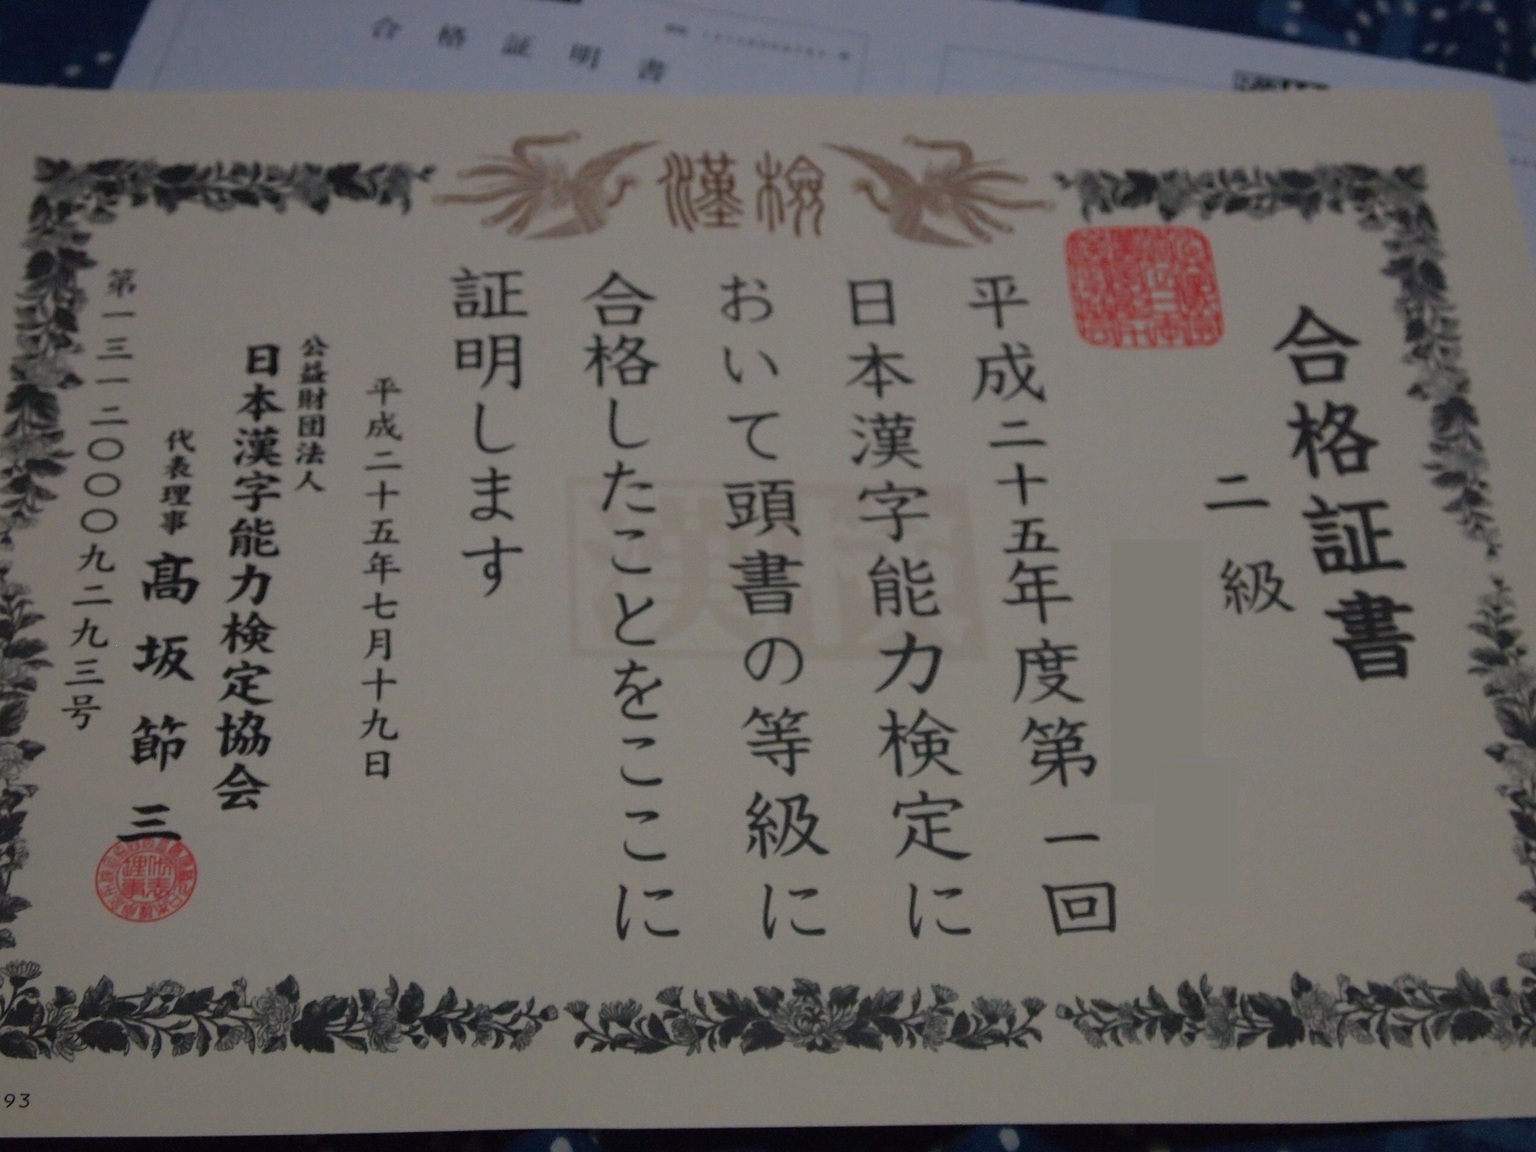 合格証明書
漢検
合格証書
二級
平成二十五年度第一回
日本漢字能力検定に
おいて頭書の等級に
合格したことをここに
証明します
平成二十五年七月十九日
公益財団法人
日本漢字能力検定協会
代表理事 髙坂節三
第一三一二〇〇〇九二九九三号
93